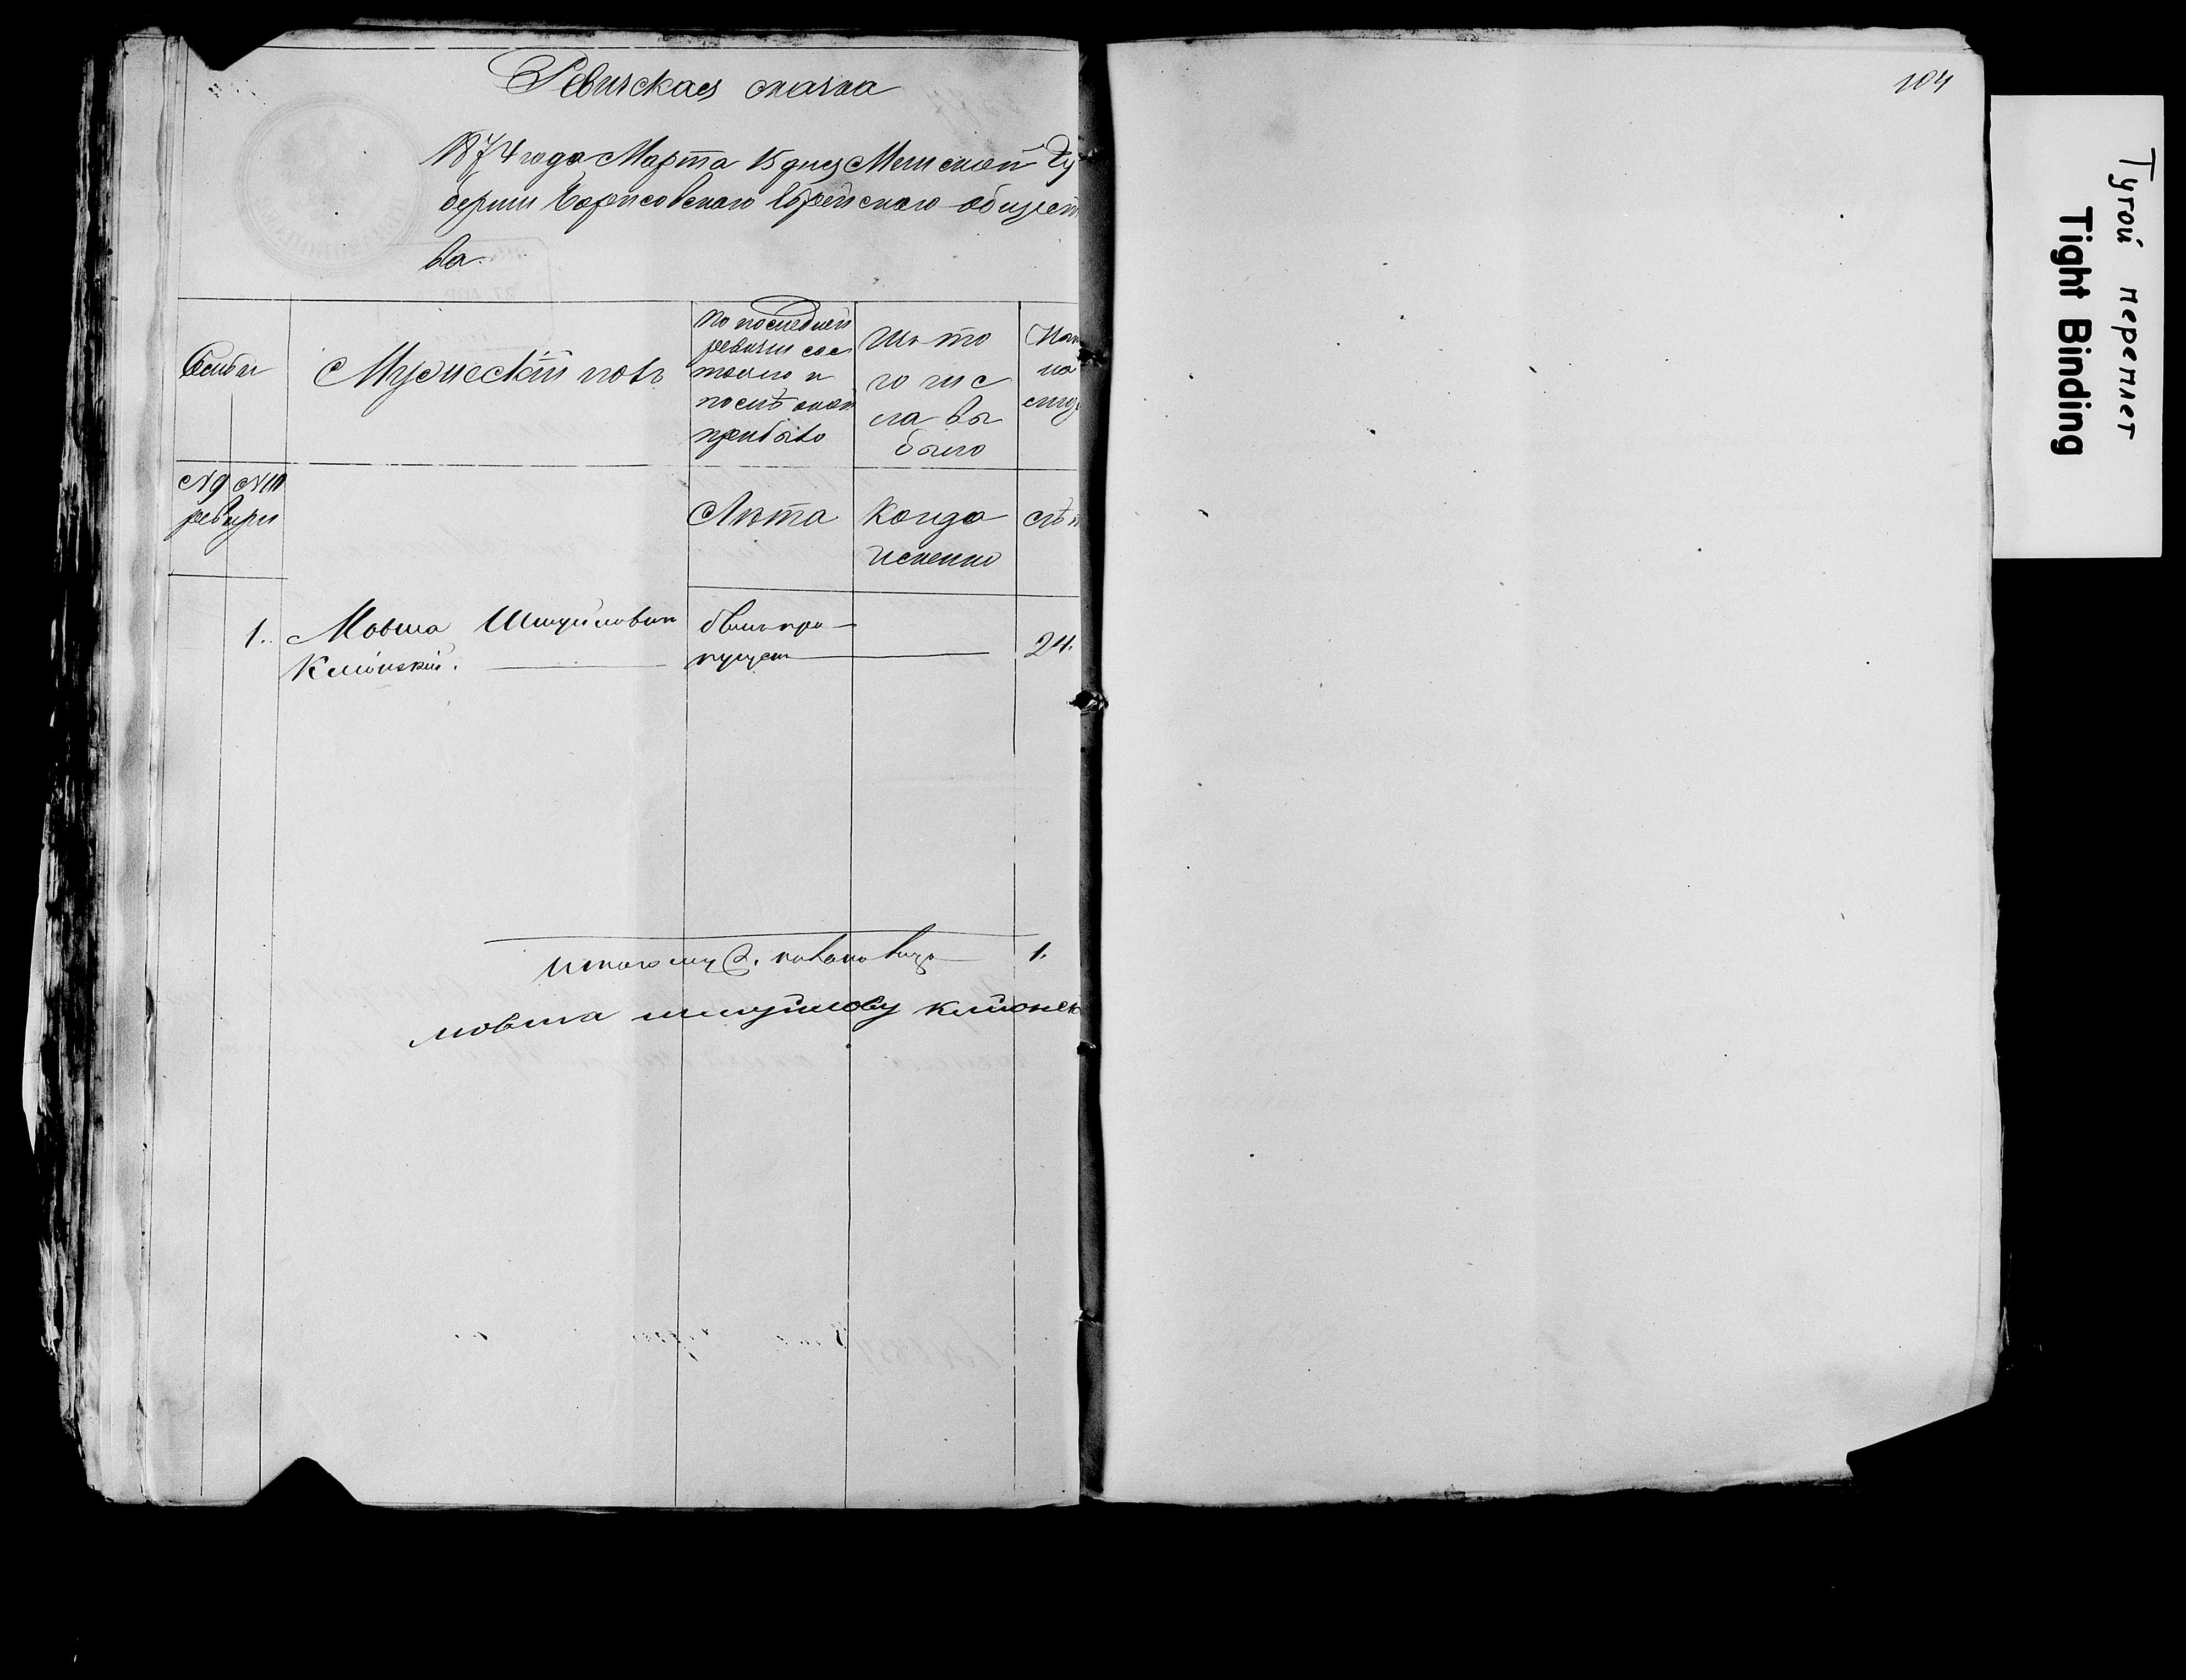 Ревизская сказка
1874 года Марта 15 дня Минской Гу
берніи Борисовскаго Еврейскаго общест
ва
Семьи
Мужескій полъ
По последней
ревизіи сос
тояло и
послѣ оной
прибыло
Изъ то
го чис
ла вы
было
на
ревизіи
Лѣта
Когда
именно
1. Мовша Шмуйловичъ
Кліонскій.
былъ про
пущен
24.
Итого на лицо 1.
мовша шмуйлову клионск
104
Тугой переплет
Tight Binding